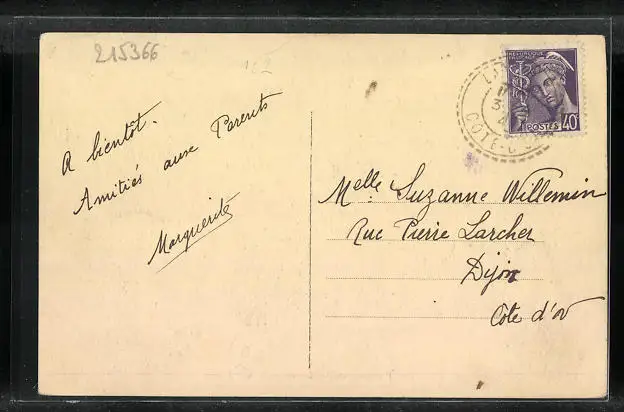 215366
A bientôt.
Amitiés aux Parents
Marguerite
REPUBLIQUE FRANÇAISE
POSTES 40c
COTE-D'OR
Melle Suzanne Willemin
Rue Pierre Larcher
Dijon
Côte d'or